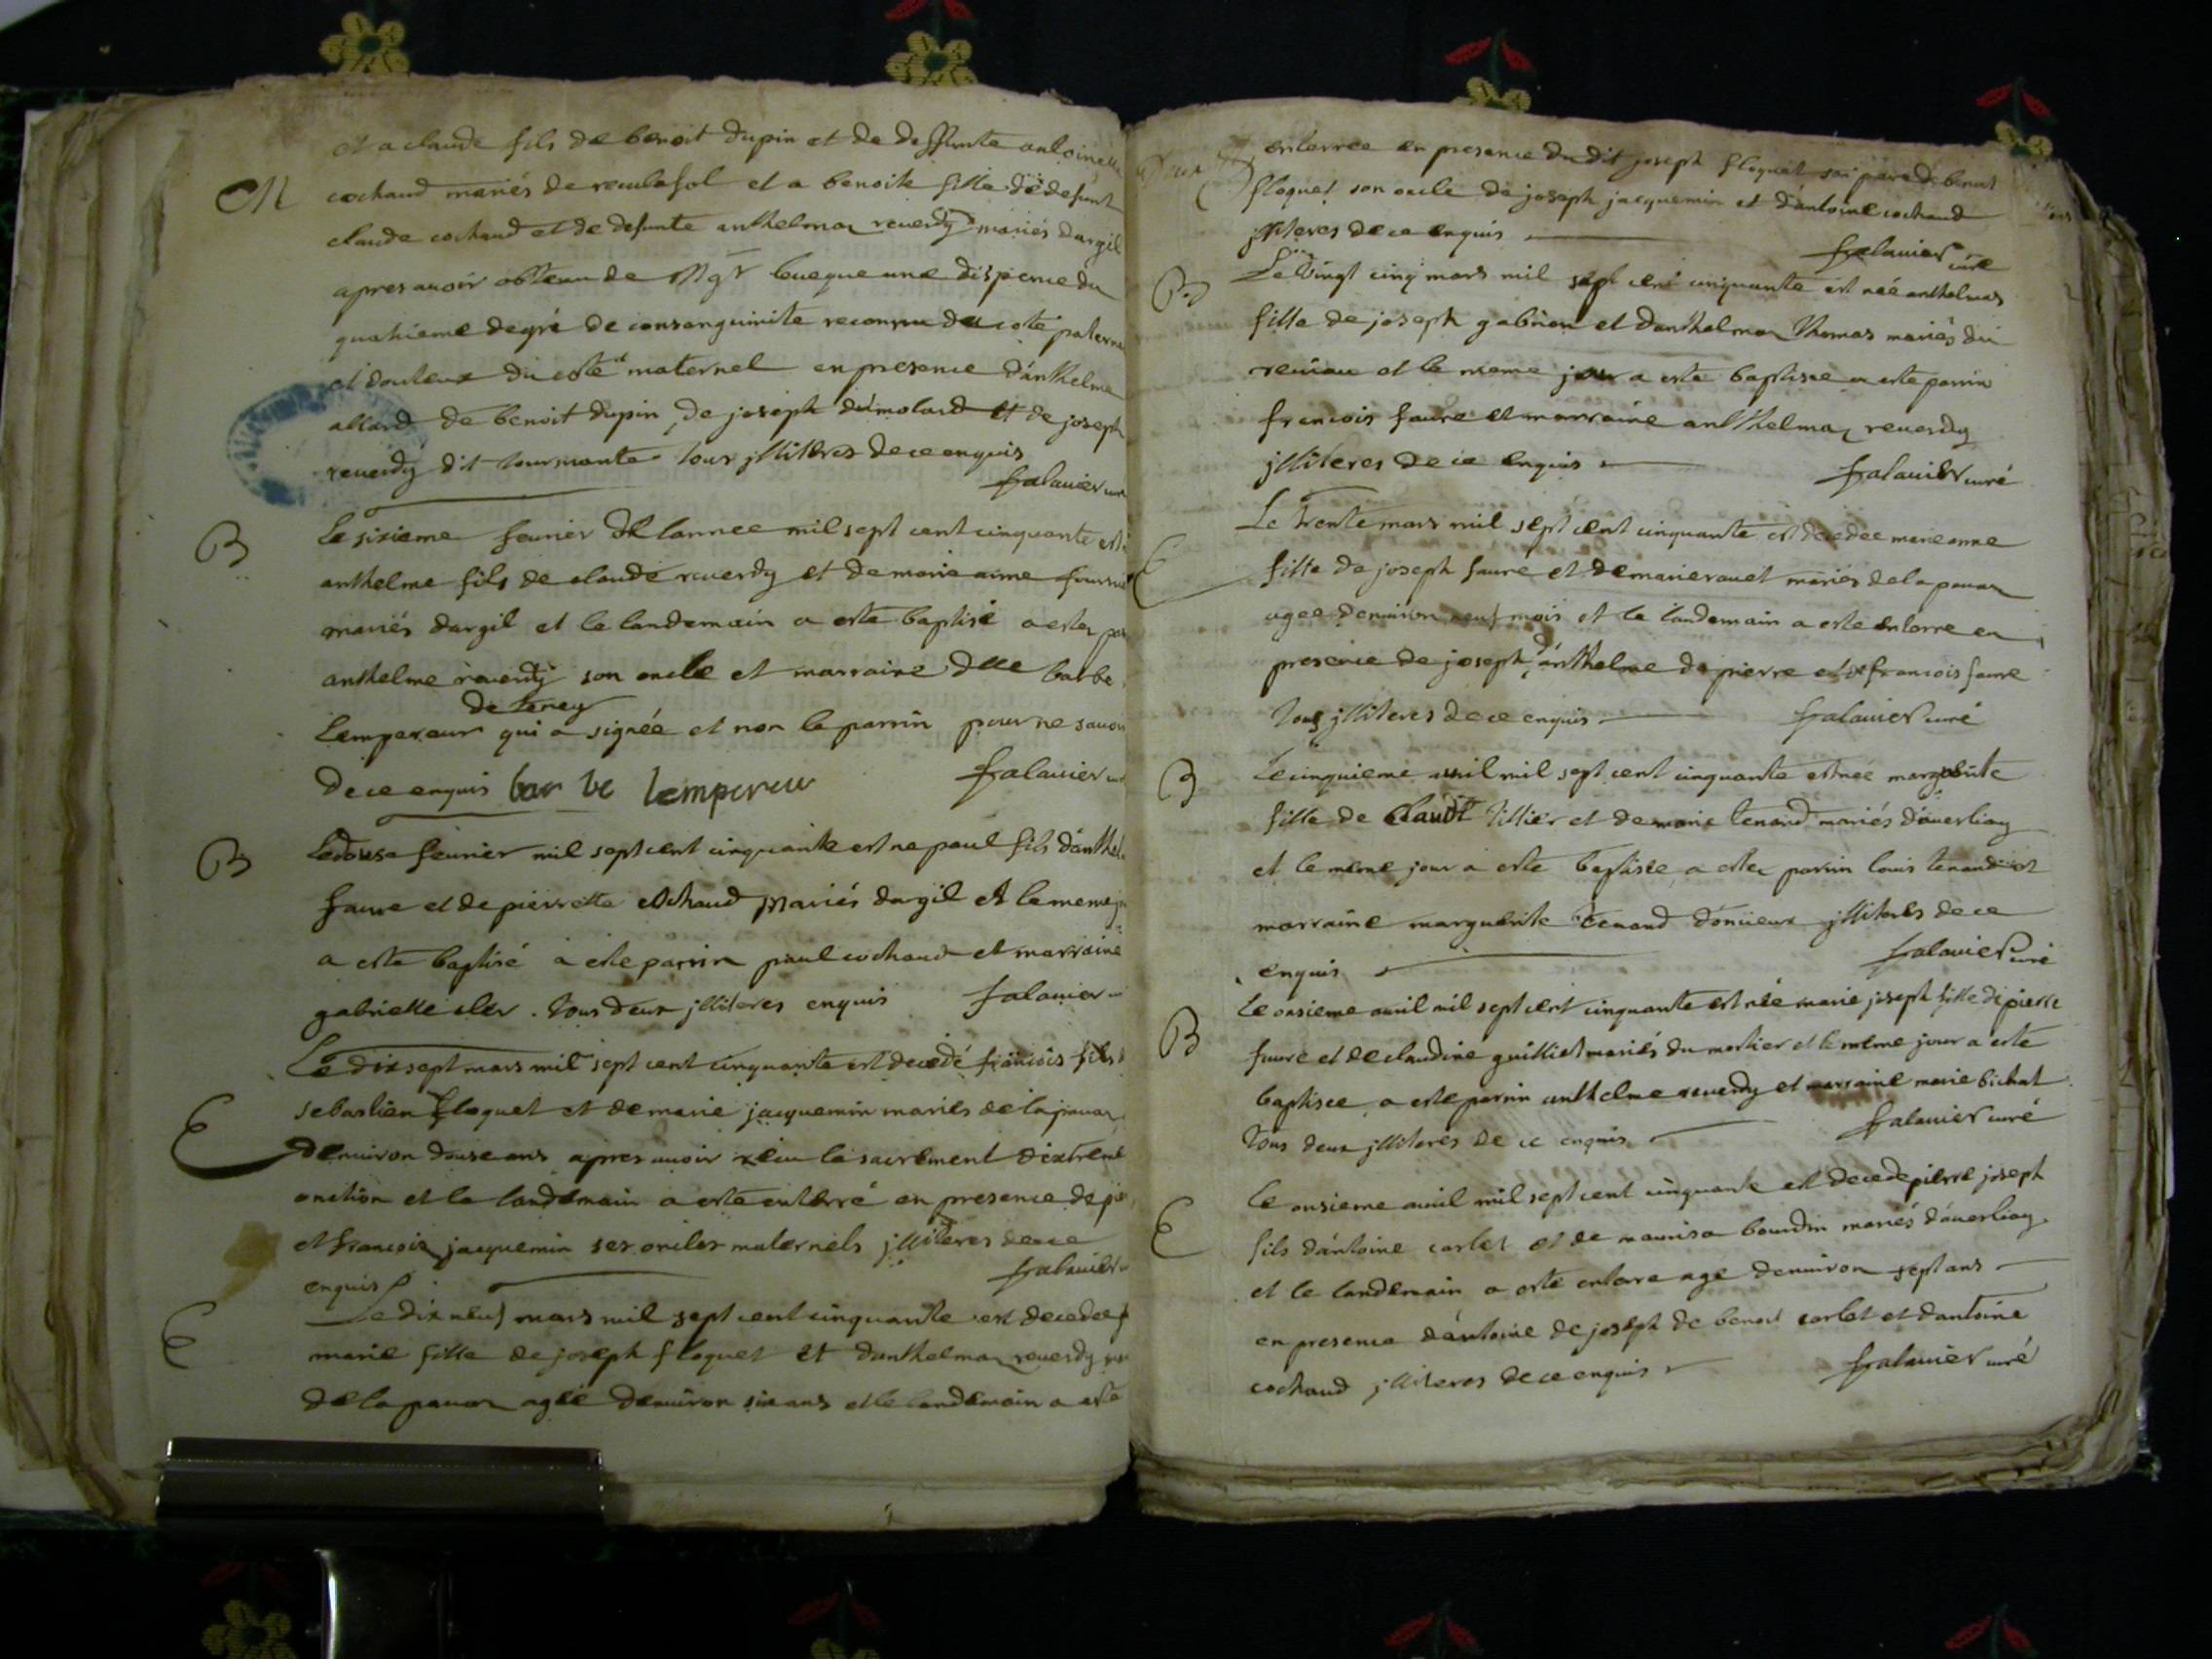 et a claude fils de benoit dupin et de deffunte antoinette
M
cochand mariés de reculafol et a benoite fille de defunt
claude cochand et de defunte anthelmaz reuerdy mariés dargil
apres auoir obtenu de Mgr leueque une dispence du
quatrieme degré de consanguinite reconnu du coté paterne
et douteux du coté maternel en presence d'anthelme
allard de benoit dupin, de joseph dumolard et de joseph
reuerdy dit tourmante tous jlliteres de ce enquis
falauier
B
Le sixieme feurier de lannee mil sept cent cinquante est
anthelme fils de claude reuerdy et de marie aime
mariés dargil et le landemain a este baptisé a este par
anthelme reuerdy son oncle et marraine dlle barbe
de teney
Lempereur qui a signée et non le parrin pour ne sauoir
de ce enquis bar be lempereur falauier
B
Le douse feurier mil sept cent cinquante est ne paul fils d'anthel
faure et de pierrette cochaud mariés dargil et le meme
a este baptisé a este parrin paul cochaud et marraine
gabrielle cler. tous deux jlliteres enquis falauier
Le dix sept mars mil sept cent cinquante est decedé francois fils
E
sebastien floquet et de marie jacquemin mariés de la pauaz
denuiron douse ans apres auoir receu le sacrement d'extreme
onction et le landemain a esté enterré en presence de
et francois jacquemin ses oncles maternels jlliteres de ce
enquis falauier
E
Le dix neuf mars mil sept cent cinquante est decedee
marie fille de joseph floquet et danthelmaz reuerdy
de la pauaz agée denuiron six ans et le landemain a esté
enterrée en presence dudit joseph floquet son pere de benoit
floquet son oncle de joseph jacquemin et d'antoine cochaud
jlliteres de ce enquis falauier curé
B
Le vingt cinq mars mil sept cent cinquante est née anthelmaz
fille de joseph gabrion et danthelmaz thomas mariés du
reuiau et le meme jour a este baptisee a este parrin
francois faure et marraine anthelmaz reuerdy
jlliteres de ce enquis falauier curé
E
Le trente mars mil sept cent cinquante est decedee marieanne
fille de joseph faure et de marie rauet mariés de la pauaz
agee denuiron neuf mois et le landemain a este enterre en
presence de joseph, d'anthelme de pierre et de francois faure
tous jlliteres de ce enquis falauier curé
B
Le cinquieme auril mil sept cent cinquante est née marguerite
fille de claude tillier et de marie tenand mariés d'auerliaz
et le meme jour a este baptisée, a este parrin louis tenand et
marraine marguerite tenand jlliteres de ce
enquis falauier curé
B
Le onsieme auril mil sept cent cinquante est née marie joseph fille de pierre
faure et de claudine guilliet mariés du mortier et le même jour a este
baptisee, a este parrin anthelme reuerdy et marraine marie bichat
tous deux jlliteres de ce enquis falauier curé
E
Le onsieme auril mil sept cent cinquante est decede pierre joseph
fils d'antoine carlet et de maurisa bourdin mariés d'auerliaz
et le landemain a este enterre agé denuiron sept ans
en presence d'antoine de joseph de benoit carlet et dantoine
cochaud jlliteres de ce enquis falauier curé